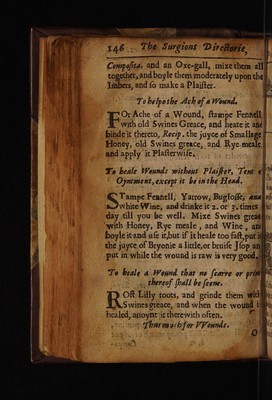 146 The Surgions Directorie,
Composita, and an Oxe-gall, mixe them all
together, and boyle them moderately upon the
Imbers, and so make a Plaister.
To helpe the Ach of a Wound.
FOr Ache of a Wound, stampe Fennell
with old Swines Greace, and heate it and
binde it thereto, Recip. the juyce of Smallage
Honey, old Swines greace, and Rye meale,
and apply it Plasterwise.
To heale Wounds without Plaister, Tent or
Oyntment, except it be in the Head.
STampe Fennell, Yarrow, Buglosse, and
white Wine, and drinke it 2. or 3. times a
day till you be well. Mixe Swines greace
with Honey, Rye meale, and Wine, and
boyle it and use it, but if it heale too fast, put in
the juyce of Bryonie a little, or bruise Jsop and
put in while the wound is raw is very good.
To heale a Wound that no scarre or print
thereof shall be seene.
ROst Lilly roots, and grinde them with
Swines greace, and when the wound is
healed, anoynt it therewith often.
Thus much for VVounds.
O